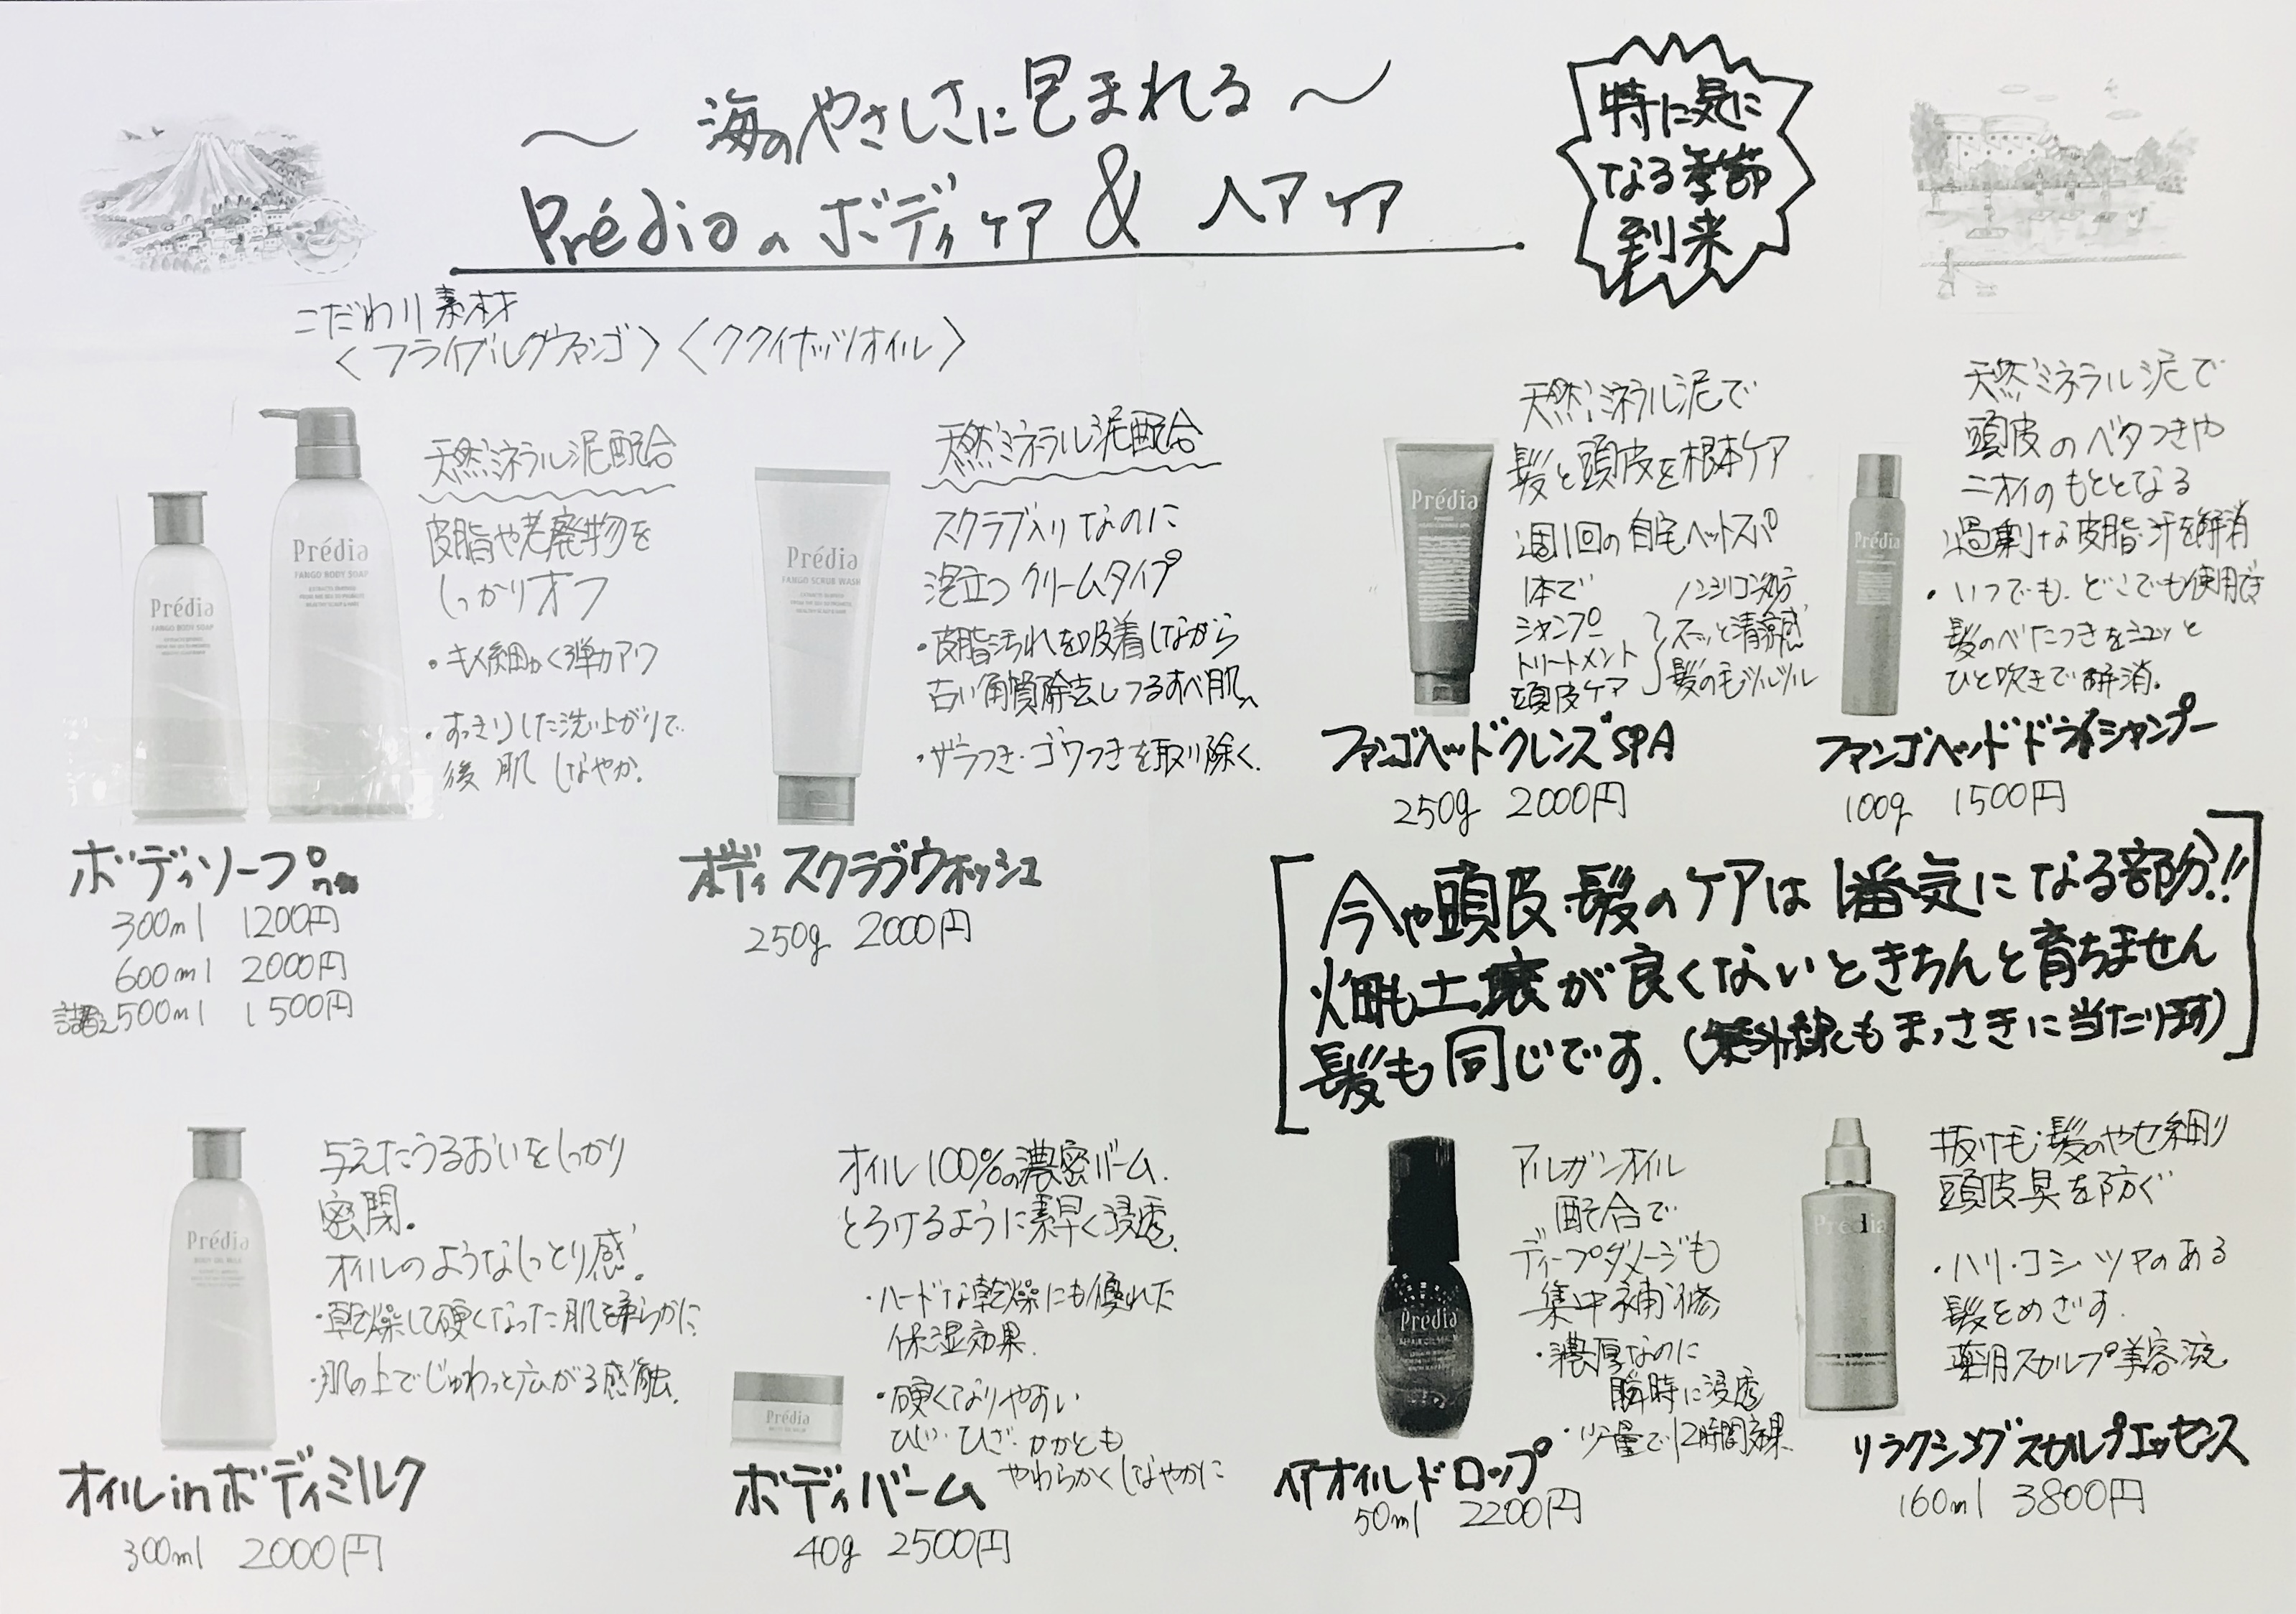 〜 海のやさしさに包まれる 〜
Prédiaのボディケア & ヘアケア
特に気に
なる季節
到来
こだわり素材
〈フライブルグファンゴ〉〈ククイナッツオイル〉
Prédia
FANGO BODY SOAP
Prédia
FANGO BODY SOAP
天然ミネラル泥配合
皮脂や老廃物を
しっかりオフ
・キメ細かく弾力アワ
・すっきりした洗い上がりで
後肌しなやか.
ボディソープ
300ml 1200円
600ml 2000円
詰替500ml 1500円
Prédia
FANGO SCRUB WASH
天然ミネラル泥配合
スクラブ入りなのに
泡立つクリームタイプ
・皮脂汚れを吸着しながら
古い角質除去しつるすべ肌へ
・ザラつき・ゴワつきを取り除く.
ボディスクラブウォッシュ
250g 2000円
Prédia
天然ミネラル泥で
髪と頭皮を根本ケア
週1回の自宅ヘットスパ
1本で
シャンプー
トリートメント
頭皮ケア
ノンシリコン処方
スーッと清涼感
髪の毛ツルツル
ファンゴヘッドクレンズSPA
250g 2000円
Prédia
天然ミネラル泥で
頭皮のベタつきや
ニオイのもととなる
過剰な皮脂・汗を解消
・いつでも、どこでも使用でき
髪のべたつきをシュッと
ひと吹きで解消.
ファンゴヘッドドライシャンプー
100g 1500円
今や頭皮・髪のケアは1番気になる部分!!
畑も土壌が良くないときちんと育ちません
髪も同じです.(紫外線もまっさきに当たります)
Prédia
BODY OIL MILK
与えたうるおいをしっかり
密閉。
オイルのようなしっとり感.
・乾燥して硬くなった肌を柔らかに
・肌の上でじゅわっと広がる感触.
オイルinボディミルク
300ml 2000円
Prédia
オイル100%の濃密バーム.
とろけるように素早く浸透.
・ハードな乾燥にも優れた
保湿効果.
・硬くなりやすい
ひじ・ひざ・かかとも
やわらかくしなやかに
ボディバーム
40g 2500円
Prédia
アルガンオイル
配合で
ディープダメージも
集中補修
・濃厚なのに
瞬時に浸透
・少量で12時間効果
ヘアオイルドロップ
50ml 2200円
Prédia
抜け毛・髪のやせ細り
頭皮臭を防ぐ
・ハリ・コシ・ツヤのある
髪をめざす.
薬用スカルプ美容液
リラクシングスカルプエッセンス
160ml 3800円